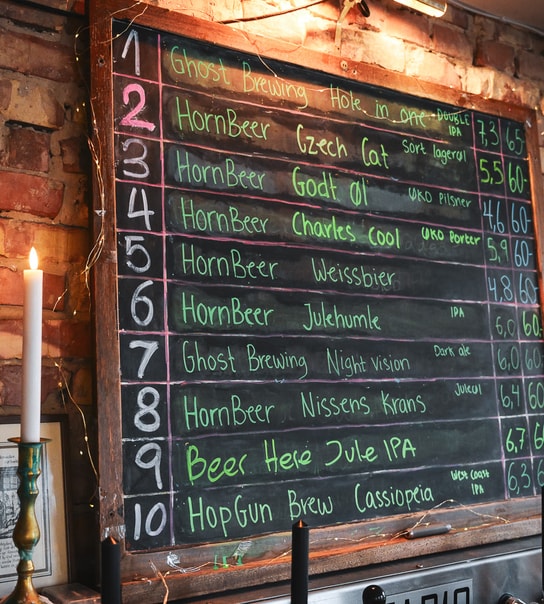 1 Ghost Brewing Hole in one DOUBLE IPA 7,3 65
2 HornBeer Czech Cat Sort lagerøl 5,5 60-
3 HornBeer Godt Øl ØKO Pilsner 4,6 60-
4 HornBeer Charles Cool ØKO Porter 5,9 60-
5 HornBeer Weissbier 4,8 60-
6 HornBeer Julehumle IPA 6,0 60-
7 Ghost Brewing Night vision Dark ale 6,0 60
8 HornBeer Nissens Krans Juleøl 6,4 60
9 Beer Here Jule IPA 6,7 6
10 HopGun Brew Cassiopeia West Coast IPA 6,3 6